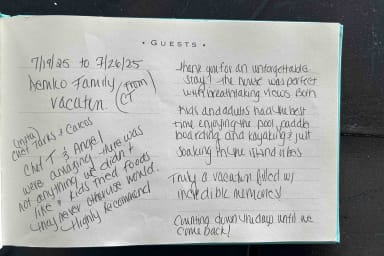 • GUESTS •
7/19/25 to 7/26/25
Family
Vacation (from
CT)
Chef T & Angel
were amazing. There was
not anything we didn't
like & kids tried foods
they never otherwise would.
Highly Recommend
Thank you for an unforgettable
stay! The house was perfect
with breathtaking views. Both
kids and adults had the best
time enjoying the pool, paddle
boarding and kayaking & just
soaking in the island vibes
Truly a vacation filled w/
incredible memories!
Counting down the days until we
come back!